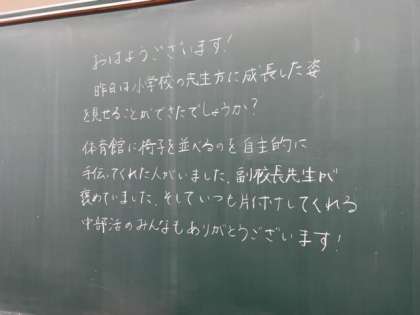 おはようございます!
昨日は小学校の先生方に成長した姿
を見せることができたでしょうか?
体育館に椅子を並べるのを自主的に
手伝ってくれた人がいました。副校長先生が
褒めていました。そしていつも片付けしてくれる
中部活のみんなもありがとうございます!